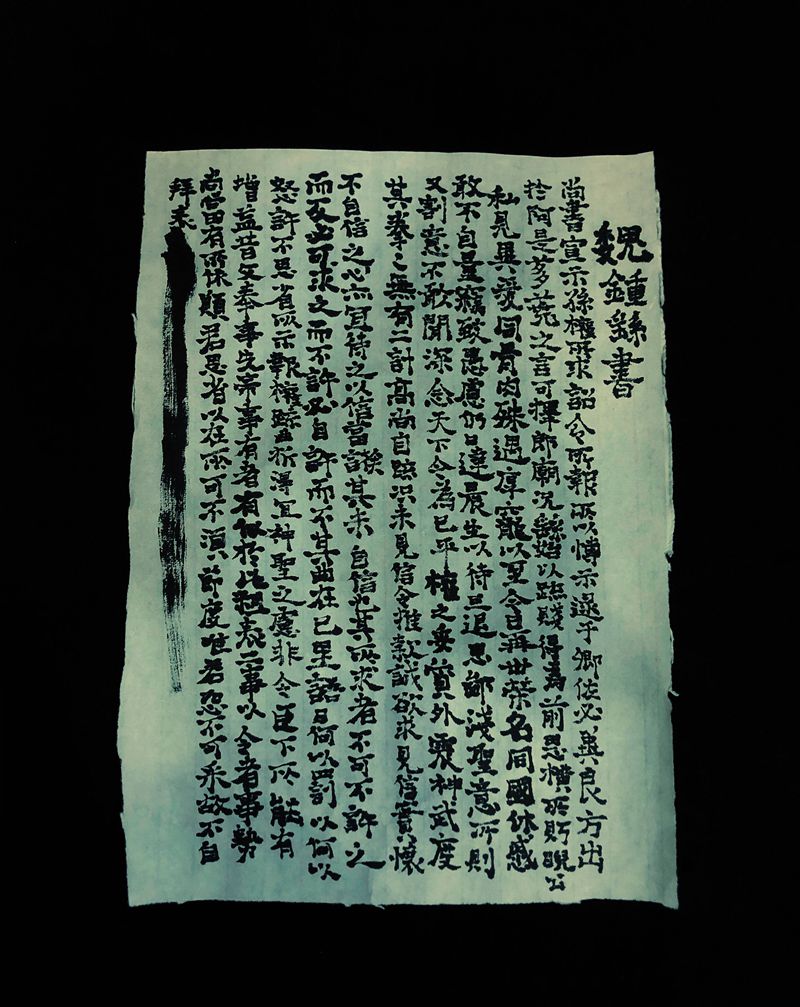 魏鍾繇書
尚書宣示孫權所求詔令所報所以博示逮于卿佐必冀良方出
於阿是芻蕘之言可擇郎廟況繇始以疏賤得為前恩橫所眄睨公
私見異愛同骨肉殊遇厚寵以至今日再世榮名同國休慼
敢不自量竊致愚慮仍日達晨坐以待旦退思鄙淺聖意所 則
又割意不敢聞深念天下今為已平權之委質外震神武度
其拳〻無有二計高尚自疏況未見信今推款誠欲求見信實懷
不自信之心亦宜待之以信當護其未自信也其所求者不可不許之
而反必可求之而不許必自許而不其曲在已里語曰何以罰以何以
怒許不思省所示報權疏 折得宜神聖之慮非今臣下所能有
增益昔文奉事先帝事有 者有似於此粗表二事以 今者事勢
尚當有所依 君思省 以在所可不 節度唯君恐不可采故不自
拜表